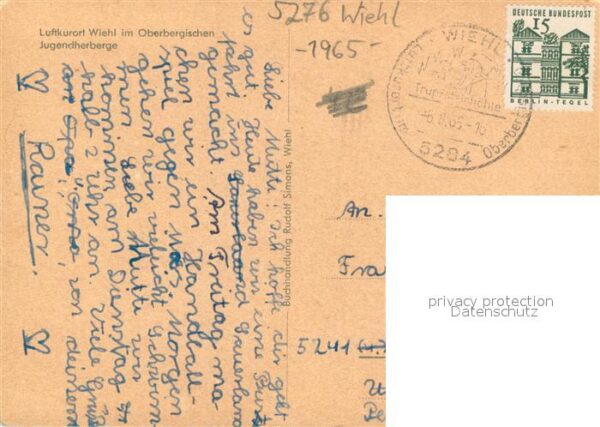 Luftkurort Wiehl im Oberbergischen
Jugendherberge
5276 Wiehl
-1965-
WIEHL
5284 Oberber
DEUTSCHE BUNDESPOST
15
BERLIN-TEGEL
Liebe Mutti! Ich hoffe dir geht
es gut. Heute haben wir eine Bus
fahrt ins Sauerland
gemacht. Am Freitag ma
chen wir ein Handball-
spiel gegen Morgen
gehen wir vielleicht Schwim
men. Liebe Mutti wir
kommen am Dienstag
halb 2 Uhr an. Viele Grüße
an Opa, Oma, von deinem
Rainer.
Buchhandlung Rudolf Simons, Wiehl
An.
Fra
5241
privacy protection
Datenschutz